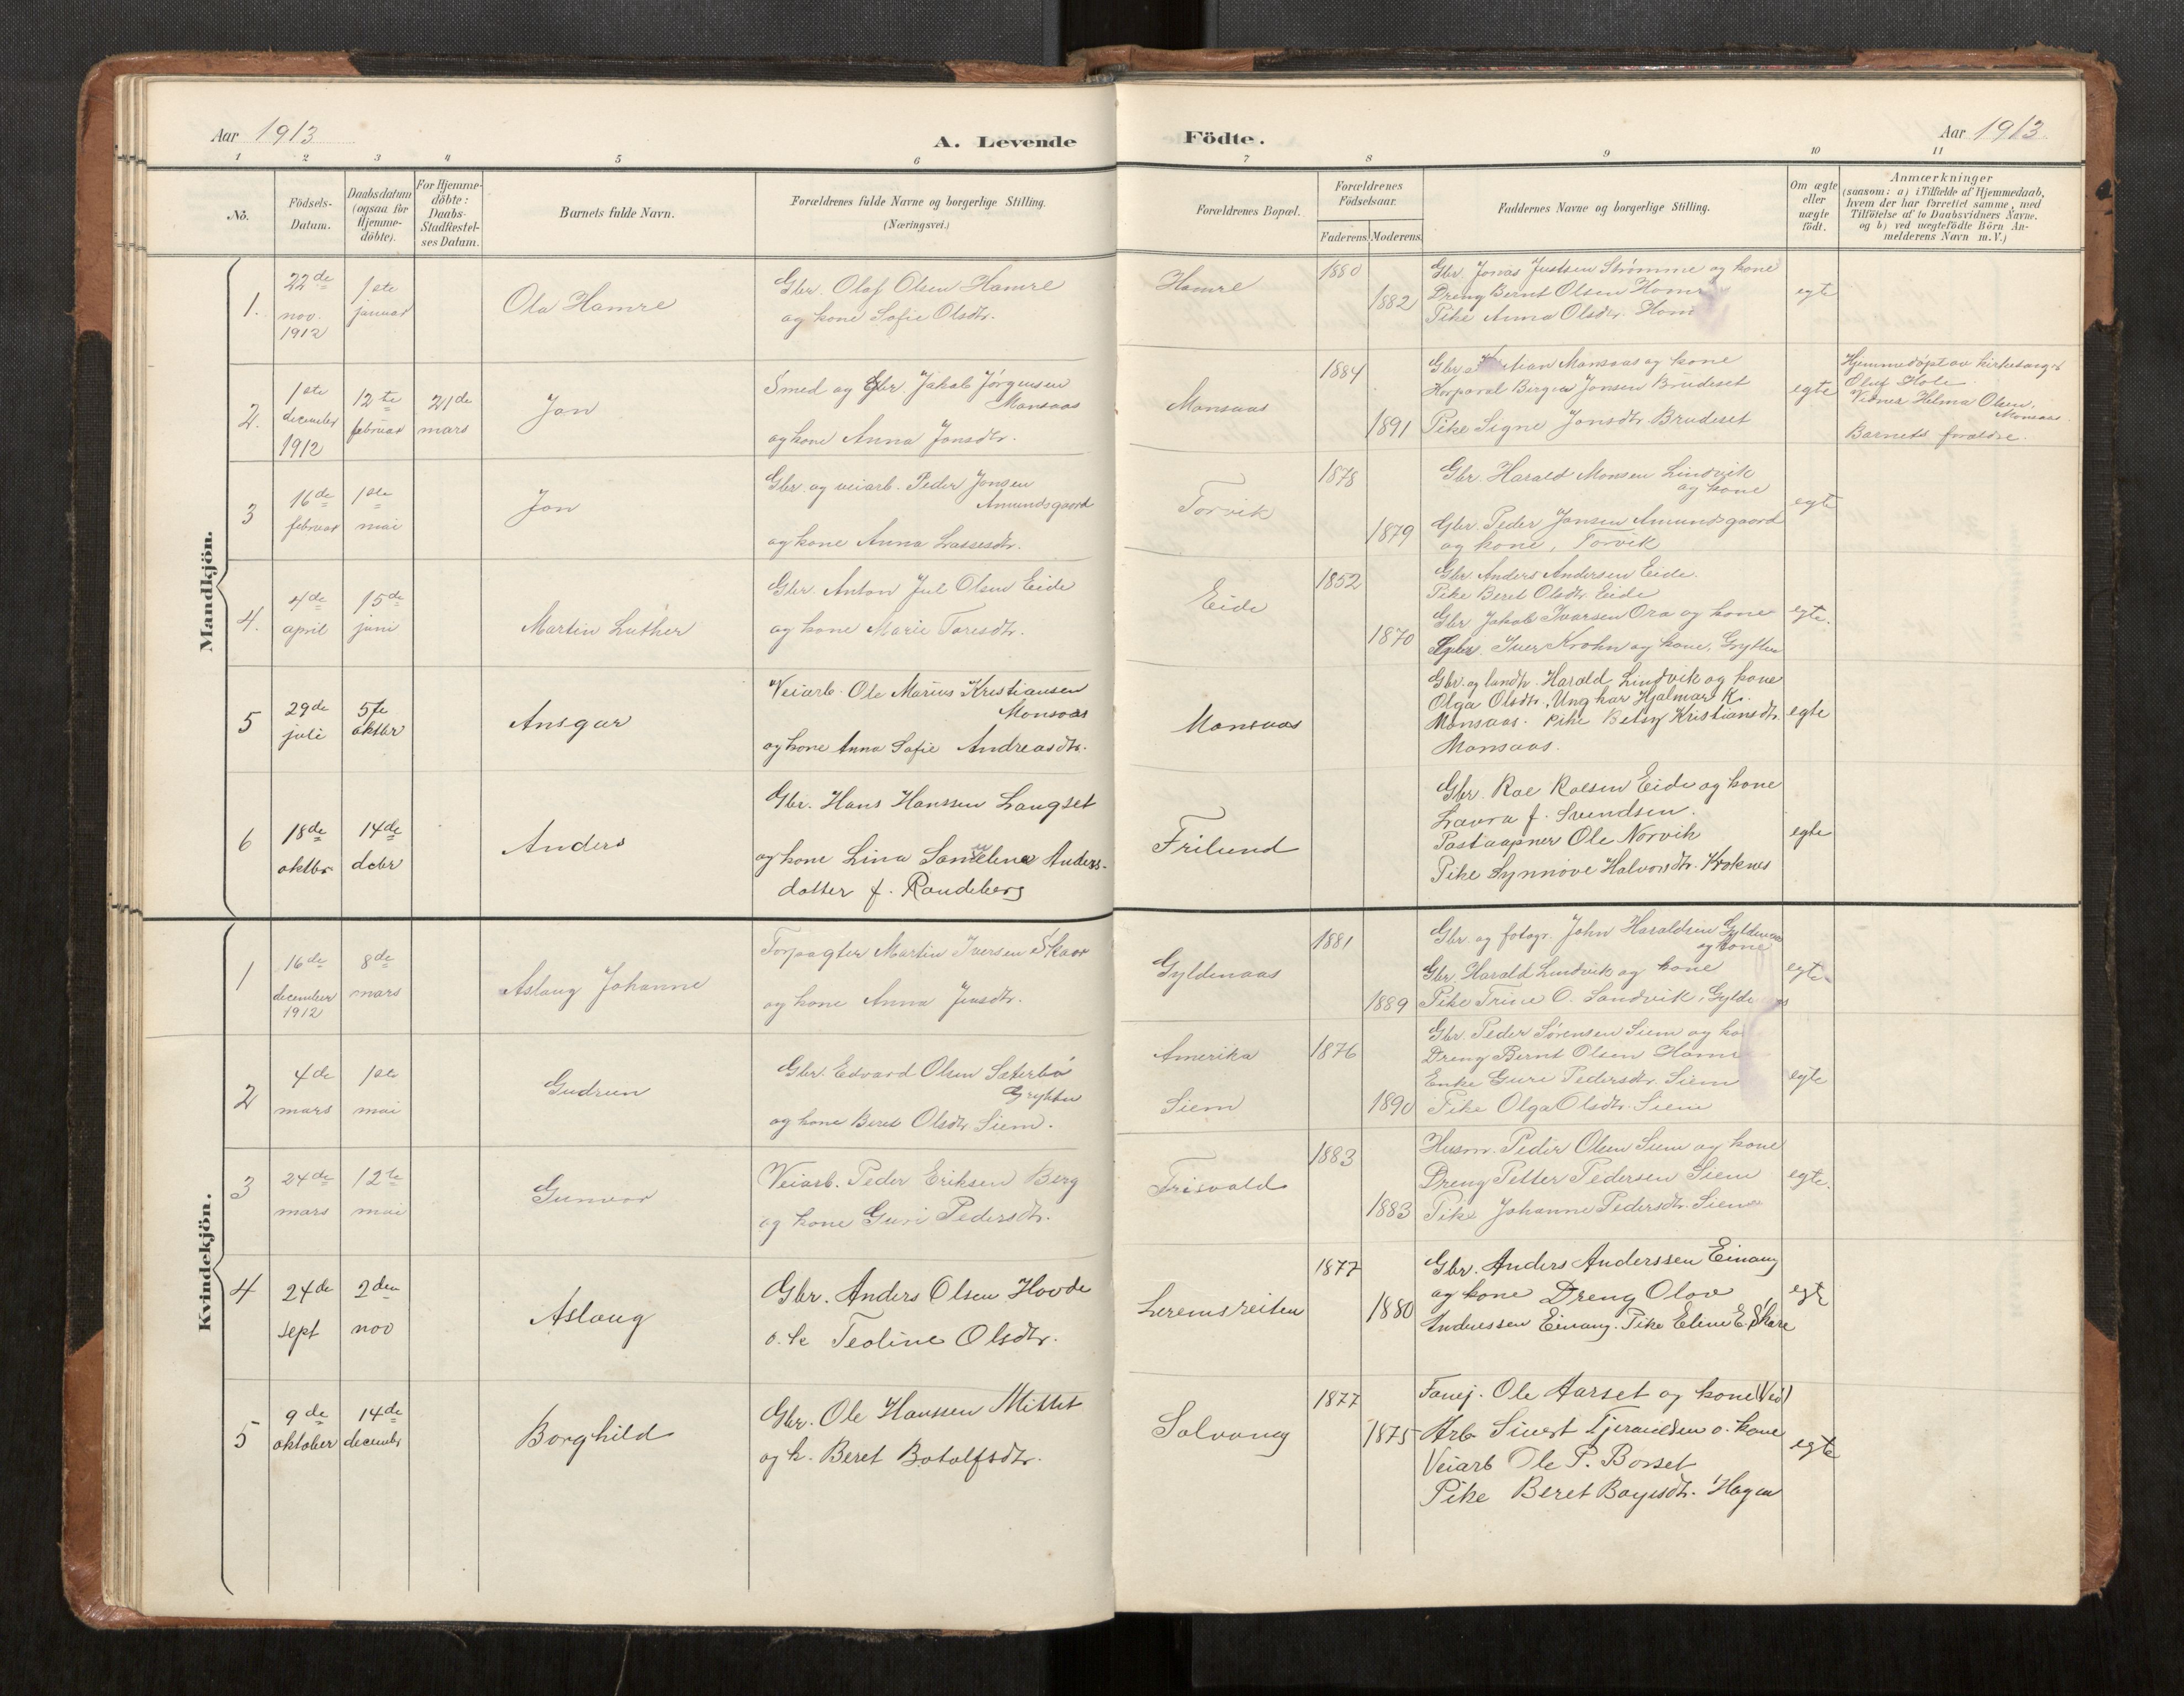 Aar 1913
A. Levende Födte.
Aar 1913
1 2 3 4 5 6 7 8 9 10 11
No.
Födsels-Datum.
Daabsdatum (ogsaa for Hjemmedöbte).
For Hjemmedöbte: Daabs-Stadfæstelses Datum.
Barnets fulde Navn.
Forældrenes fulde Navne og borgerlige Stilling. (Næringsvei.)
Forældrenes Bopæl.
Forældrenes Födselsaar.
Faderens. Moderens.
Faddernes Navne og borgerlige Stilling.
Om ægte eller uægte födt.
Anmærkninger
(saasom: a) i Tilfælde af Hjemmedaab,
hvem der har forrettet samme, med
Tilföielse af to Daabsvidners Navne,
og b) ved uægtefödte Börn Anmelderens Navn m.V.)
Mandkjön.
1. 22de nov. 1912
1ste januar
Ola Hamre
Gbr. Olaf Olsen Hamre
og kone Sofie Olsdtr.
Hamre
1880
1882
Gbr. Jonas Justsen Strømme og kone
Dreng Bernt Olsen Hamre
Pike Anna Olsdtr.
egte
2. 1ste december 1912
12te februar
21de mars
Jon
Smed og Gbr Jakob Jørgensen
Monsaas
og kone Anna Jonsdtr.
Monsaas
1884
1891
Gbr. Monsaas og kone
Korporal Birger Jonsen Brudeset
Pike Signe Jonsdtr. Brudeset
egte
Hjemmedøpt av kirkesanger
Oluf Hole
Vidner Helma Olsen,
Monsaas.
Barnets forældre.
3 16de februar
1ste mai
Jon
Gbr. og veiarb. Peder Jonsen
Amundsgaard
og kone Anna Lassesdtr.
Torvik
1878
1879
Gbr. Harald Monsen Lindvik
og kone
Gbr. Peder Jansen Amundsgaard
og kone, Torvik
egte
4. 4de april
15de juni
Martin Luther
Gbr. Anton Jul Olsen Eide
og kone Marie Toresdtr.
Eide
1852
1870
Gbr. Anders Andersen Eide.
Pike Beret Olsdtr. Eide
Gbr Jakob Ivarsen Ora og kone
Gbr. Iver Krohn og kone, Grytten
egte.
5 29de juli
5te oktbr
Ansgar
Veiarb. Ole Marius Kristiansen
Monsaas
og kone Anna Sofie Andreasdtr.
Monsaas
Gbr. og landh. Harald Lindvik og kone
Olga Olsdtr. Ungkar Hjalmar K.
Monsaas. Pike Betsy Kristiansdtr.
Monsaas.
egte
6 18de oktbr
14de debr
Anders
Gbr. Hans Hanssen Langset
og kone Lina Anders-
datter f. Randeberg
Frilund
Gbr. Roe Roesen Eide og kone
Laura f. Svendsen.
Postaapner Ole Norvik
Pike Synnöve Halvorsdtr. Kroknes
egte
Kvindekjön.
1 16de december 1912
8de mars
Aslaug Johanne
Forpagter Martin Iversen Skaar
og kone Anna Jensdtr.
Gyldenaas
1881
1889
Gbr. og fotogr. John Haraldsen Gyldenaas
og kone
Gbr. Harald Lindvik og kone
Pike Trine O. Sandvik,
egte
2 4de mars
1ste mai
Gudrun
Gbr. Edvard Olsen Sæterbø
Grytten
og kone Beret Olsdtr Siem.
Amerika
Siem
1876
1890
Gbr. Peder Sørensen Siem og
Dreng Bernt Olsen
Enke Guri Pedersdtr. Siem
Pike Olga Olsdtr. Siem
egte
3 24de mars
12te mai
Gunvor
Veiarb. Peder Eriksen Berg
og kone Guri Pedersdtr.
Frisvold
1883
1883
Husm. Peder Olsen Siem og kone
Dreng Petter Pedersen Siem
Pike Johanne Pedersdtr. Siem
egte.
4 24de sept
2den nov
Aslaug
Gbr. Anders Olsen Hovde
o. k. Teoline Olsdtr.
Lereimsreiten
1877
1880
Gbr. Anders Anderssen Einang
og kone Dreng Olav
Anderssen Einang. Pike Eline E. Skare
egte
5 9de oktober
14de decembr
Borghild
Gbr. Ole Hanssen Mittet
og k. Beret Botolfsdtr.
Solvang
1877
1875
Ole Aarset og kone
Arb. Sivert o. kone
Veiarb Ole P. Borset
Pike Beret Hagen
egte